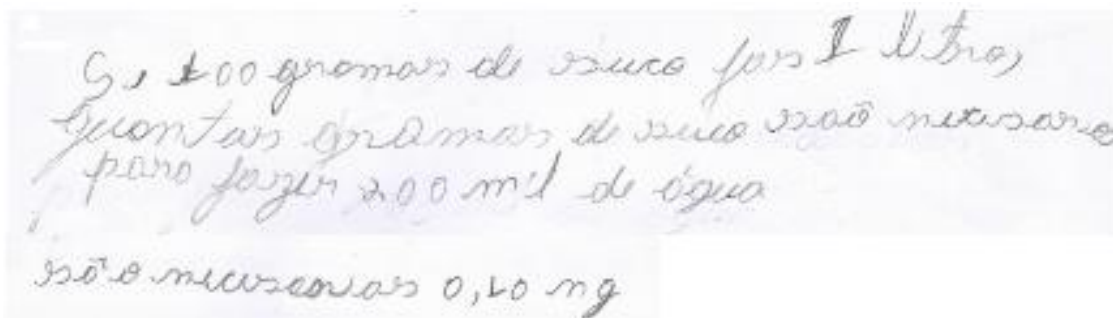 Se 100 gramas de suco fas 1 litro,
quantas gramas de suco são necesario
para fazer 200 mil de água
são necesarias 0,20 mg